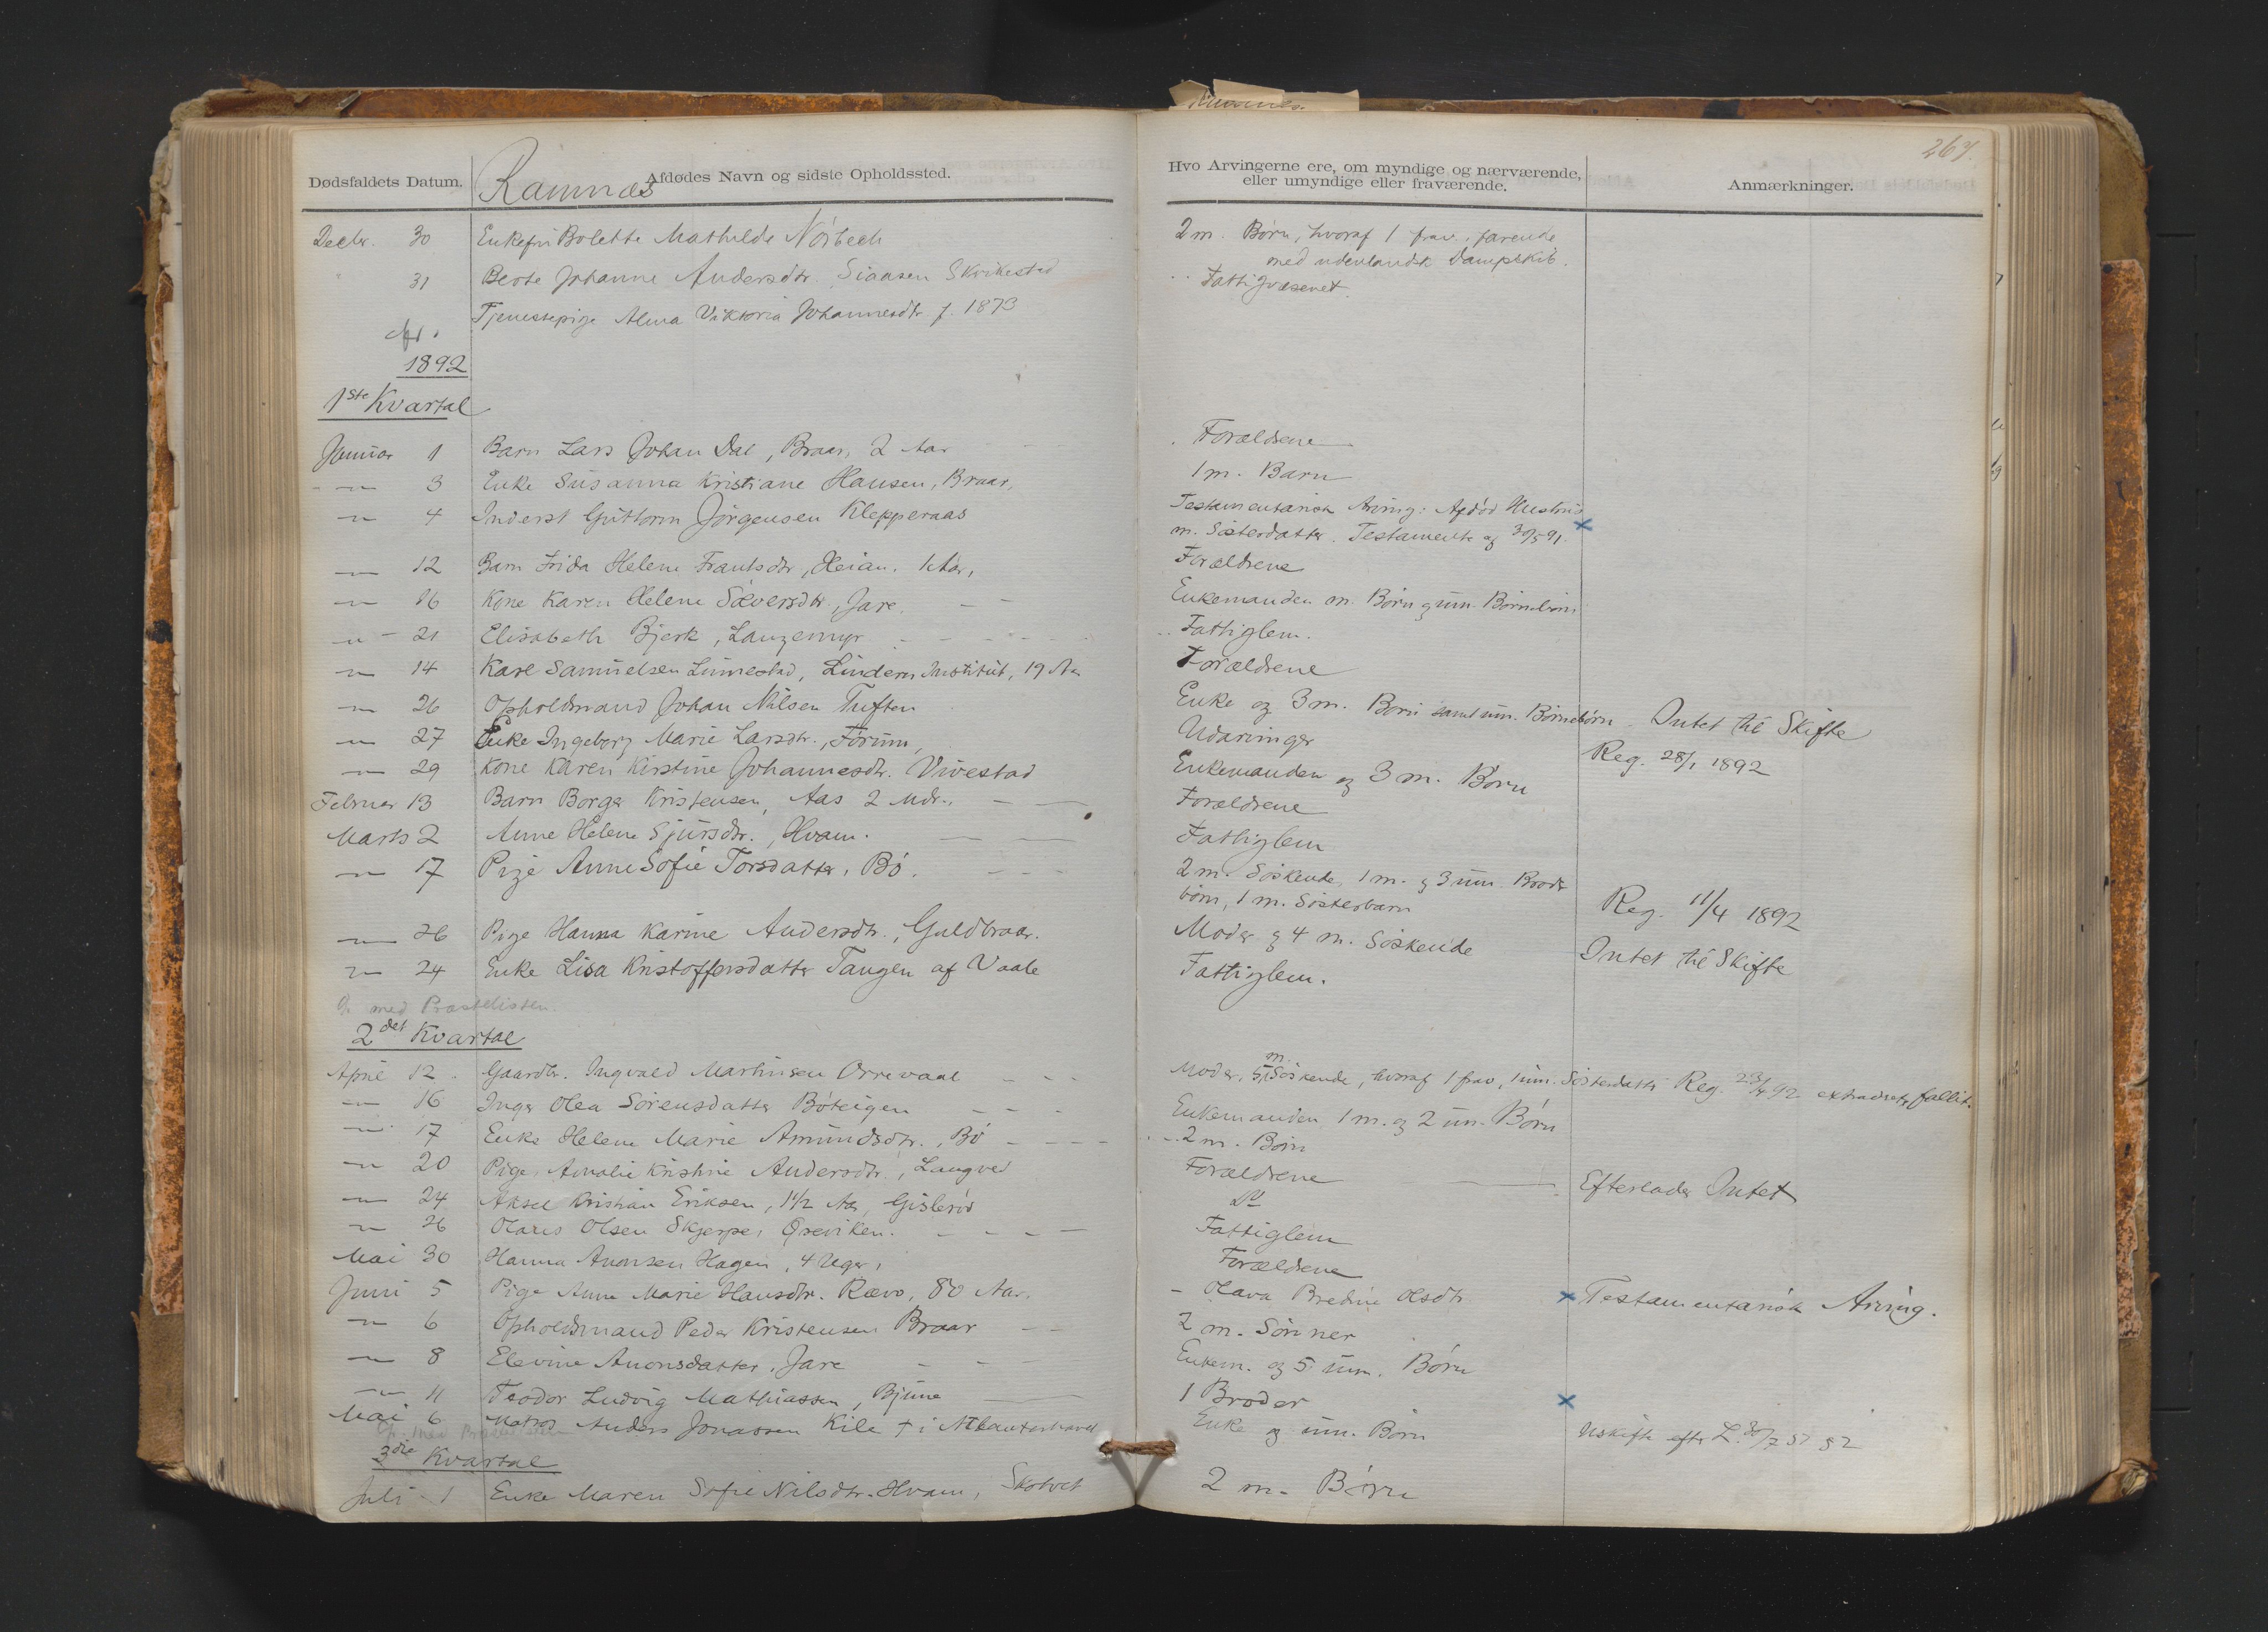 Ramnæs
264.
Dødsfaldets Datum. Afdødes Navn og sidste Opholdssted. Hvo Arvingerne ere, om myndige og nærværende, Anmærkninger.
eller umyndige eller fraværende.
Decbr. 30 Enkefru Bolette Mathilde Nörbech 2 m. Börn, hvoraf 1 frav. farende
med udenlandsk Dampskib.
" 31 Berte Johanne Andersdtr. Skrikestad Fattigvæsenet.
Tjenestepige Alma Viktoria Johannesdtr f. 1873
Afs.
1892
1ste Kvartal
Januar 1 Barn Lars Johan Dal, Braar, 2 Aar Forældrene
-"- 3 Enke Susanna Kristiane Hansen, Braar, 1 m. Barn
-"- 4 Inderst Guttorm Jörgensen Klepperaas Testamentarisk Arving: Afdöd Hustrus
m. Sösterdatter. Testamente af 30/5 91.
-"- 12 Barn Frida Helene Frantsdtr, Heian. 1 Aar, Forældrene
-"- 16 Kone Karen Helene Sæversdtr, Jare. Enkemanden m. Börn g um. Börnebörn
-"- 21 Elisabeth Bjerk, Langemyr Fattiglem.
-"- 14 Karl Samuelsen Linnestad, Lindern Institut, 19 Aar Forældrene
-"- 26 Opholdsmand Johan Nilsen Tuften Enke og 3 m. Börn samt um. Börnebörn. Intet til Skifte
-"- 27 Enke Ingeborg Marie Larsdtr., Forum, Udarvinger Reg. 28/1 1892
-"- 29 Kone Karen Kirstine Johannesdtr. Vivestad Enkemanden og 3 m. Börn
Februar 13 Barn Borger Kristensen, Aas 2 Mdr. Forældrene
Marts 2 Anne Helene Sjursdtr., Hvam. Fattiglem
-"- 17 Pige Anne Sofie Torsdatter, Bö. 2 m. Söskende, 1 m. g 3 um. Broder
börn, 1 m. Sösterbarn Reg. 11/4 1892
-"- 26 Pige Hanna Karine Andersdtr., Guldbraar. Moder g 4 m. Söskende Intet til Skifte
-"- 24 Enke Lisa Kristoffersdatter Tangen af Vaale Fattiglem.
med Præstelisten.
2det Kvartal
April 12 Gaardbr. Ingvald Martinsen Orrevaal Moder, 5 m. Söskende, hvoraf 1 frav, 1 um. Sösterdatter Reg. 23/4 92 fallit.
-"- 16 Inger Olea Sörensdatter Böteigen Enkemanden 1 m. og 2 um. Börn
-"- 17 Enke Helene Marie Amundsdtr., Bö 2 m. Börn
-"- 20 Pige Amalie Kristine Andersdtr., Langved Forældrene Efterlader Intet
-"- 24 Aksel Kristian Eriksen, 1 1/2 Aar, Gisleröd Do
-"- 26 Olaus Olsen Skjerpe, Greviken. Fattiglem
Mai 30 Hanna Anonsen Hagen, 4 Uger, Forældrene
Juni 5 Pige Anne Marie Hansdtr. Rævo, 80 Aar. Olava Bredine Olsdtr Testamentarisk Arving.
-"- 6 Opholdsmand Peder Kristensen Braar 2 m. Sönner
-"- 8 Elevine Anonsdatter, Jare Enkem. og 5 um. Börn
-"- 11 Teodor Ludvig Mathiassen, Bjune 1 Broder
Mai 6 Matros Anders Jonassen Kile † i Atlanterhavet Enke og um. Börn Uskifte efter L. 30/7 51 § 2
3die Kvartal
Juli 1 Enke Maren Sofie Nilsdtr. Hvam, Skotvet 2 m. Börn